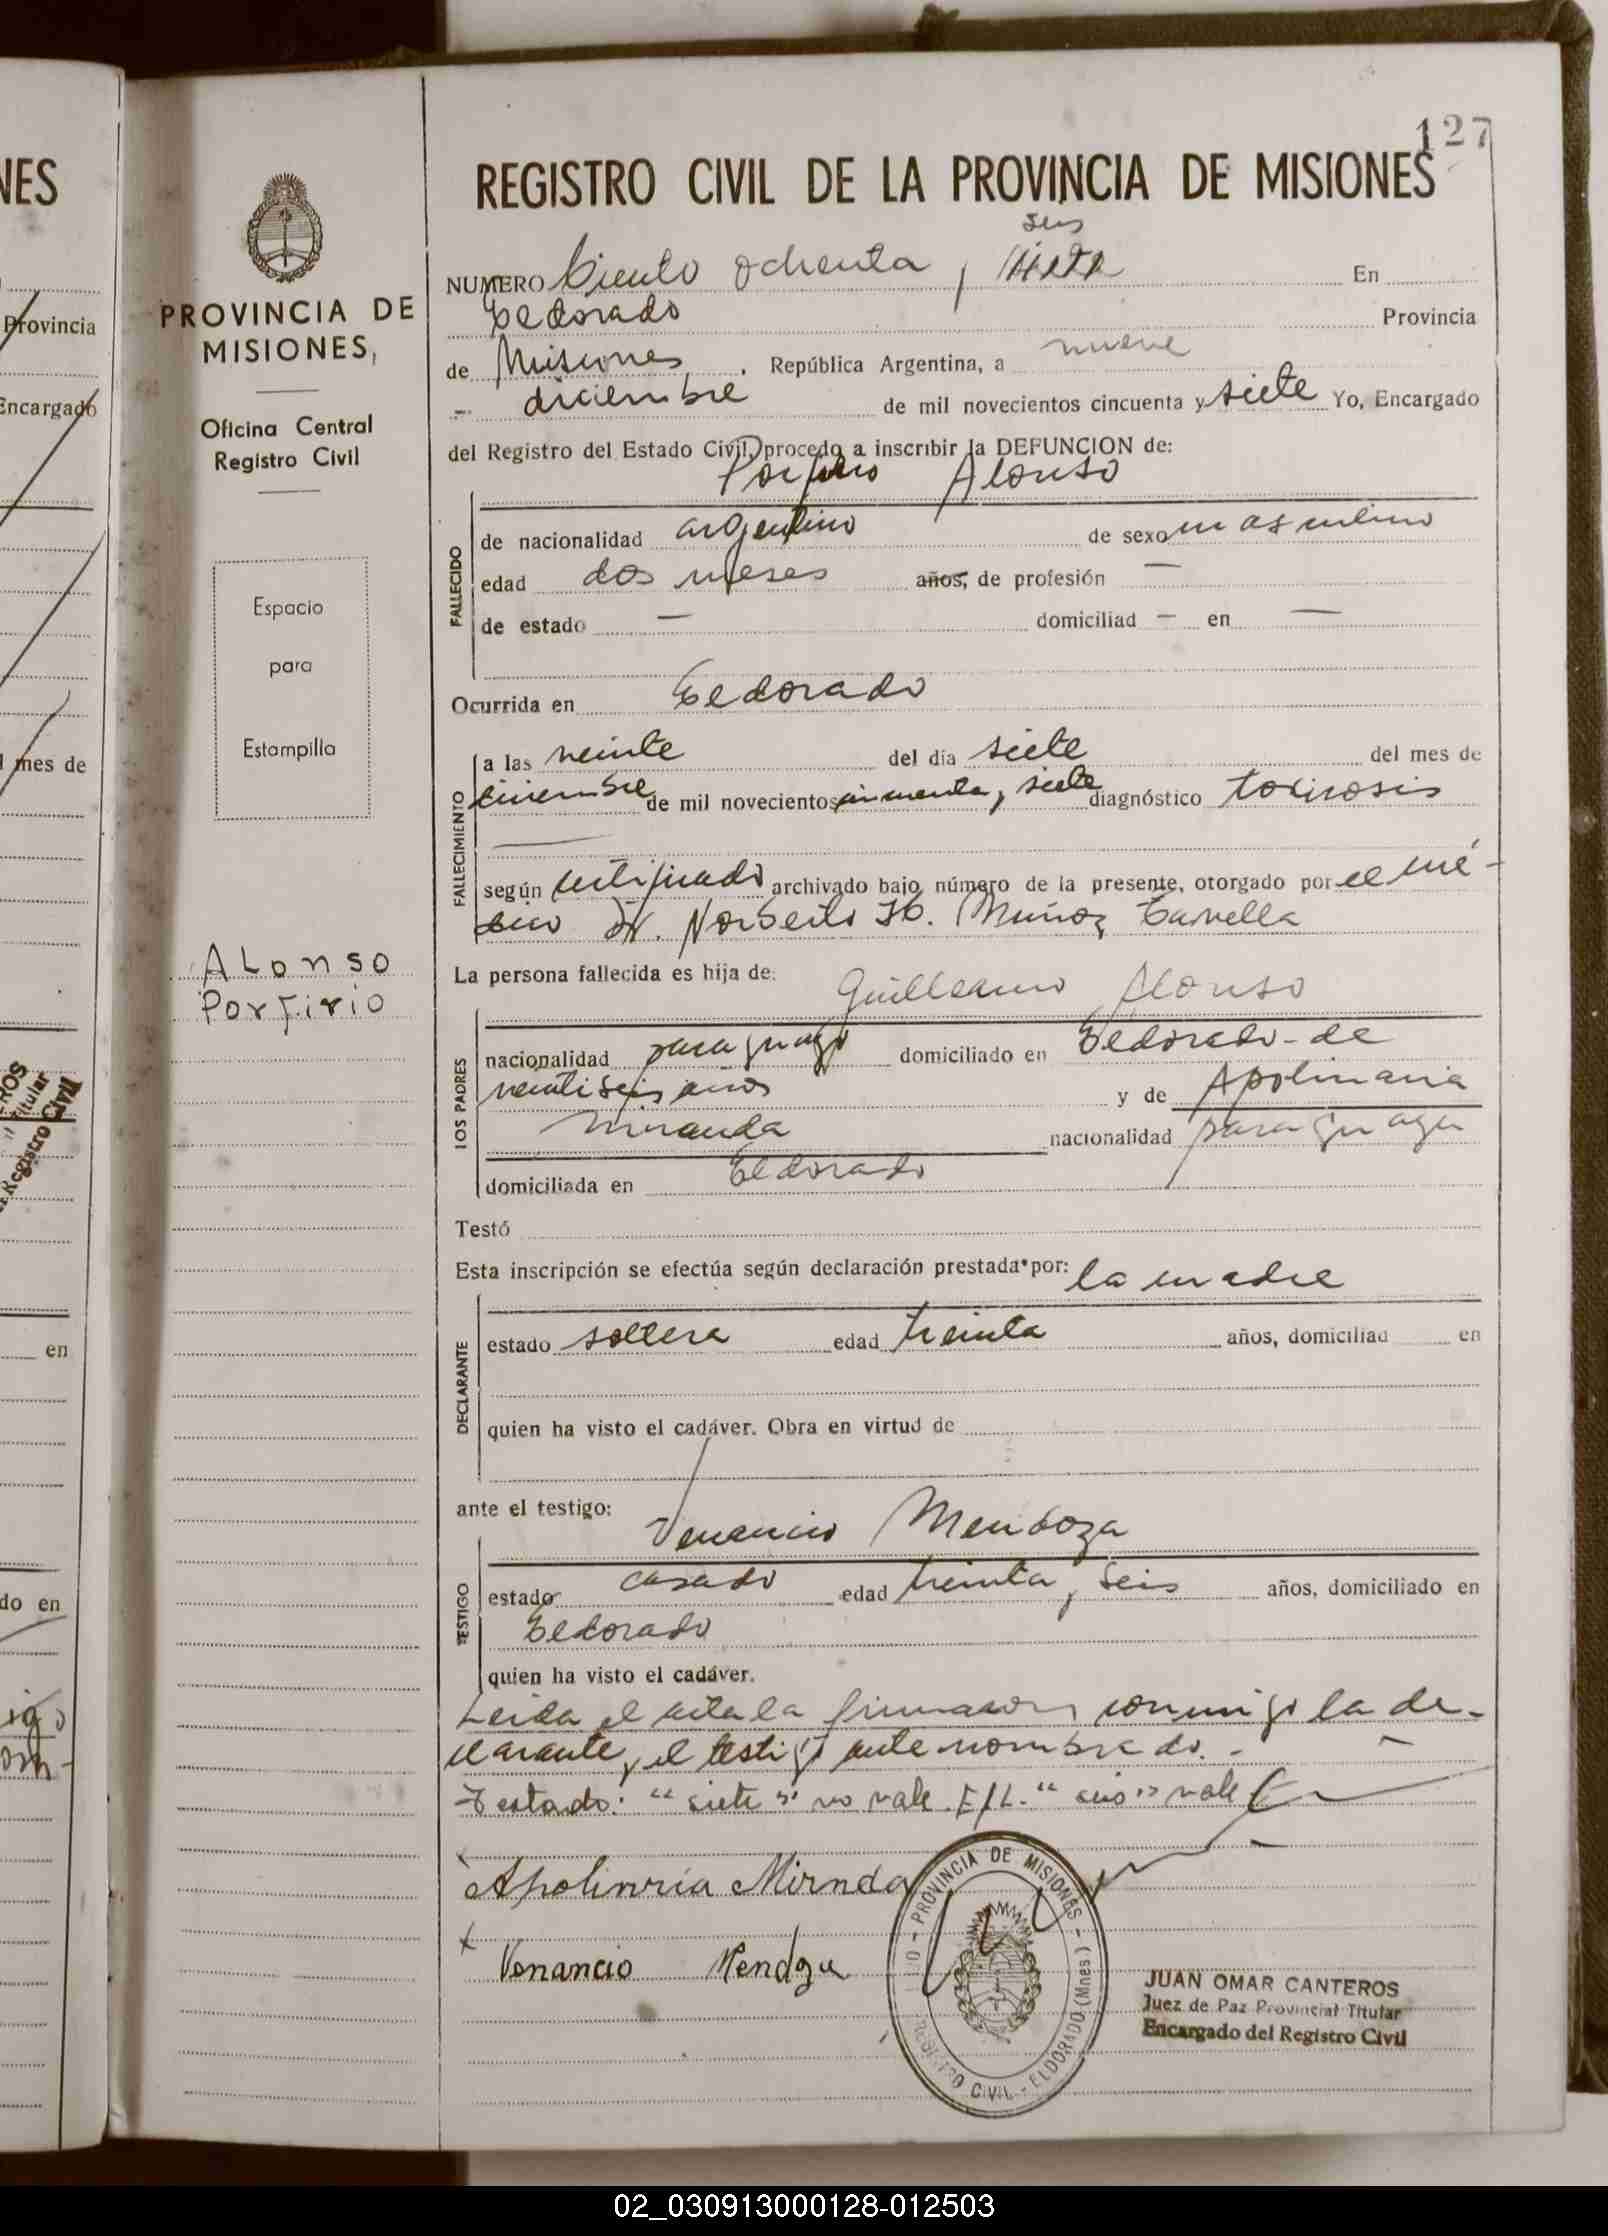 127
NES
REGISTRO CIVIL DE LA PROVINCIA DE MISIONES
seis
NUMERO Ciento ochenta y siete En
Eldorado Provincia
de Misiones, República Argentina, a nueve
diciembre de mil novecientos cincuenta y siete Yo, Encargado
del Registro del Estado Civil, procedo a inscribir la DEFUNCION de:
Porfirio Alonso
FALLECIDO
de nacionalidad argentino de sexo masculino
edad dos meses años, de profesión —
de estado — domiciliad — en —
Ocurrida en Eldorado
FALLECIMIENTO
a las veinte del día siete del mes de
diciembre de mil novecientos cincuenta y siete diagnóstico toxicosis
según certificado archivado bajo número de la presente, otorgado por el mé-
dico Dr. Norberto H. Muñoz
La persona fallecida es hija de:
Guillermo Alonso
LOS PADRES
nacionalidad paraguayo domiciliado en Eldorado - de
veintiseis años y de Apolinaria
Miranda nacionalidad paraguaya
domiciliada en Eldorado
Testó
Esta inscripción se efectúa según declaración prestada por: la madre
DECLARANTE
estado soltera edad treinta años, domiciliad en
quien ha visto el cadáver. Obra en virtud de
ante el testigo:
Venancio Mendoza
TESTIGO
estado casado edad treinta y seis años, domiciliado en
Eldorado
quien ha visto el cadáver.
Leída el acta la firmaron conmigo la de-
clarante y el testigo ante nombrado. -
Testado: "siete" no vale. E/L. "seis" vale
Apolinria Mirnda
x Venancio Mendoza
PROVINCIA DE MISIONES - REGISTRO CIVIL - ELDORADO (Mnes.)
JUAN OMAR CANTEROS
Juez de Paz Provincial Titular
Encargado del Registro Civil
PROVINCIA DE
MISIONES,
Oficina Central
Registro Civil
Espacio
para
Estampilla
Alonso
Porfirio
Provincia
Encargado
l mes de
ROS
Titular
Registro Civil
en
do en
02_030913000128-012503